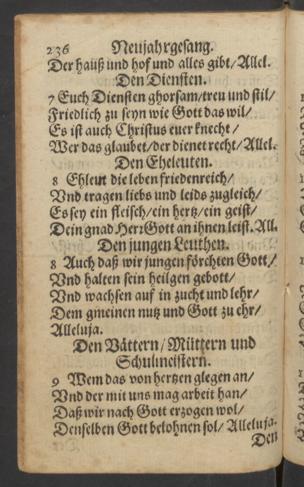 236 Neujahrgesang.
Der hauß und hof und alles gibt/ Allel.
Den Diensten.
7 Euch Diensten ghorsam/ treu und stil/
Friedlich zu seyn wie Gott das wil/
Es ist auch Christus euer knecht/
Wer das glaubet/ der dienet recht/ Allel.
Den Eheleuten.
8 Ehleut die leben friedenreich/
Vnd tragen liebs und leids zugleich/
Es sey ein fleisch/ ein hertz/ ein geist/
Dein gnad Her: Gott an ihnen leist. All.
Den jungen Leuthen.
8 Auch daß wir jungen förchten Gott/
Vnd halten sein heilgen gebott/
Vnd wachsen auf in zucht und lehr/
Dem gmeinen nutz und Gott zu ehr/
Alleluja.
Den Vättern/ Müttern und
Schulmeistern.
9 Wem das von hertzen glegen an/
Vnd der mit uns mag arbeit han/
Daß wir nach Gott erzogen wol/
Denselben Gott belohnen sol/ Alleluja.
Den